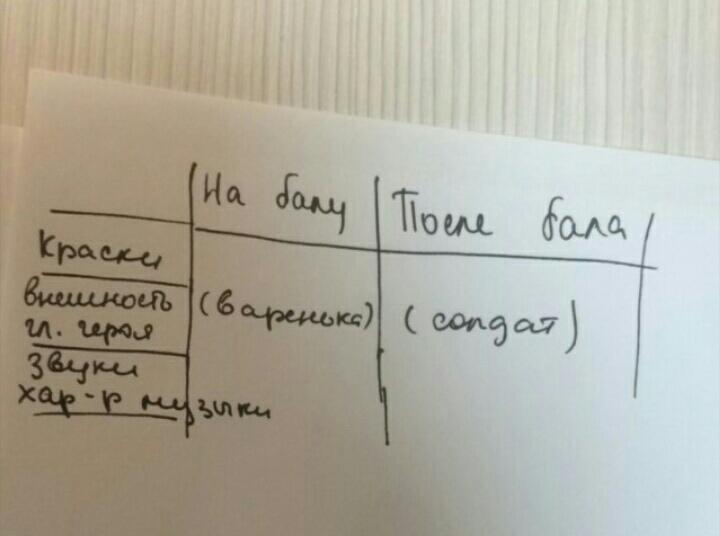 На балу После бала
Краски
внешность (варенька) (солдат)
гл. героя
звуки
хар-р музыки